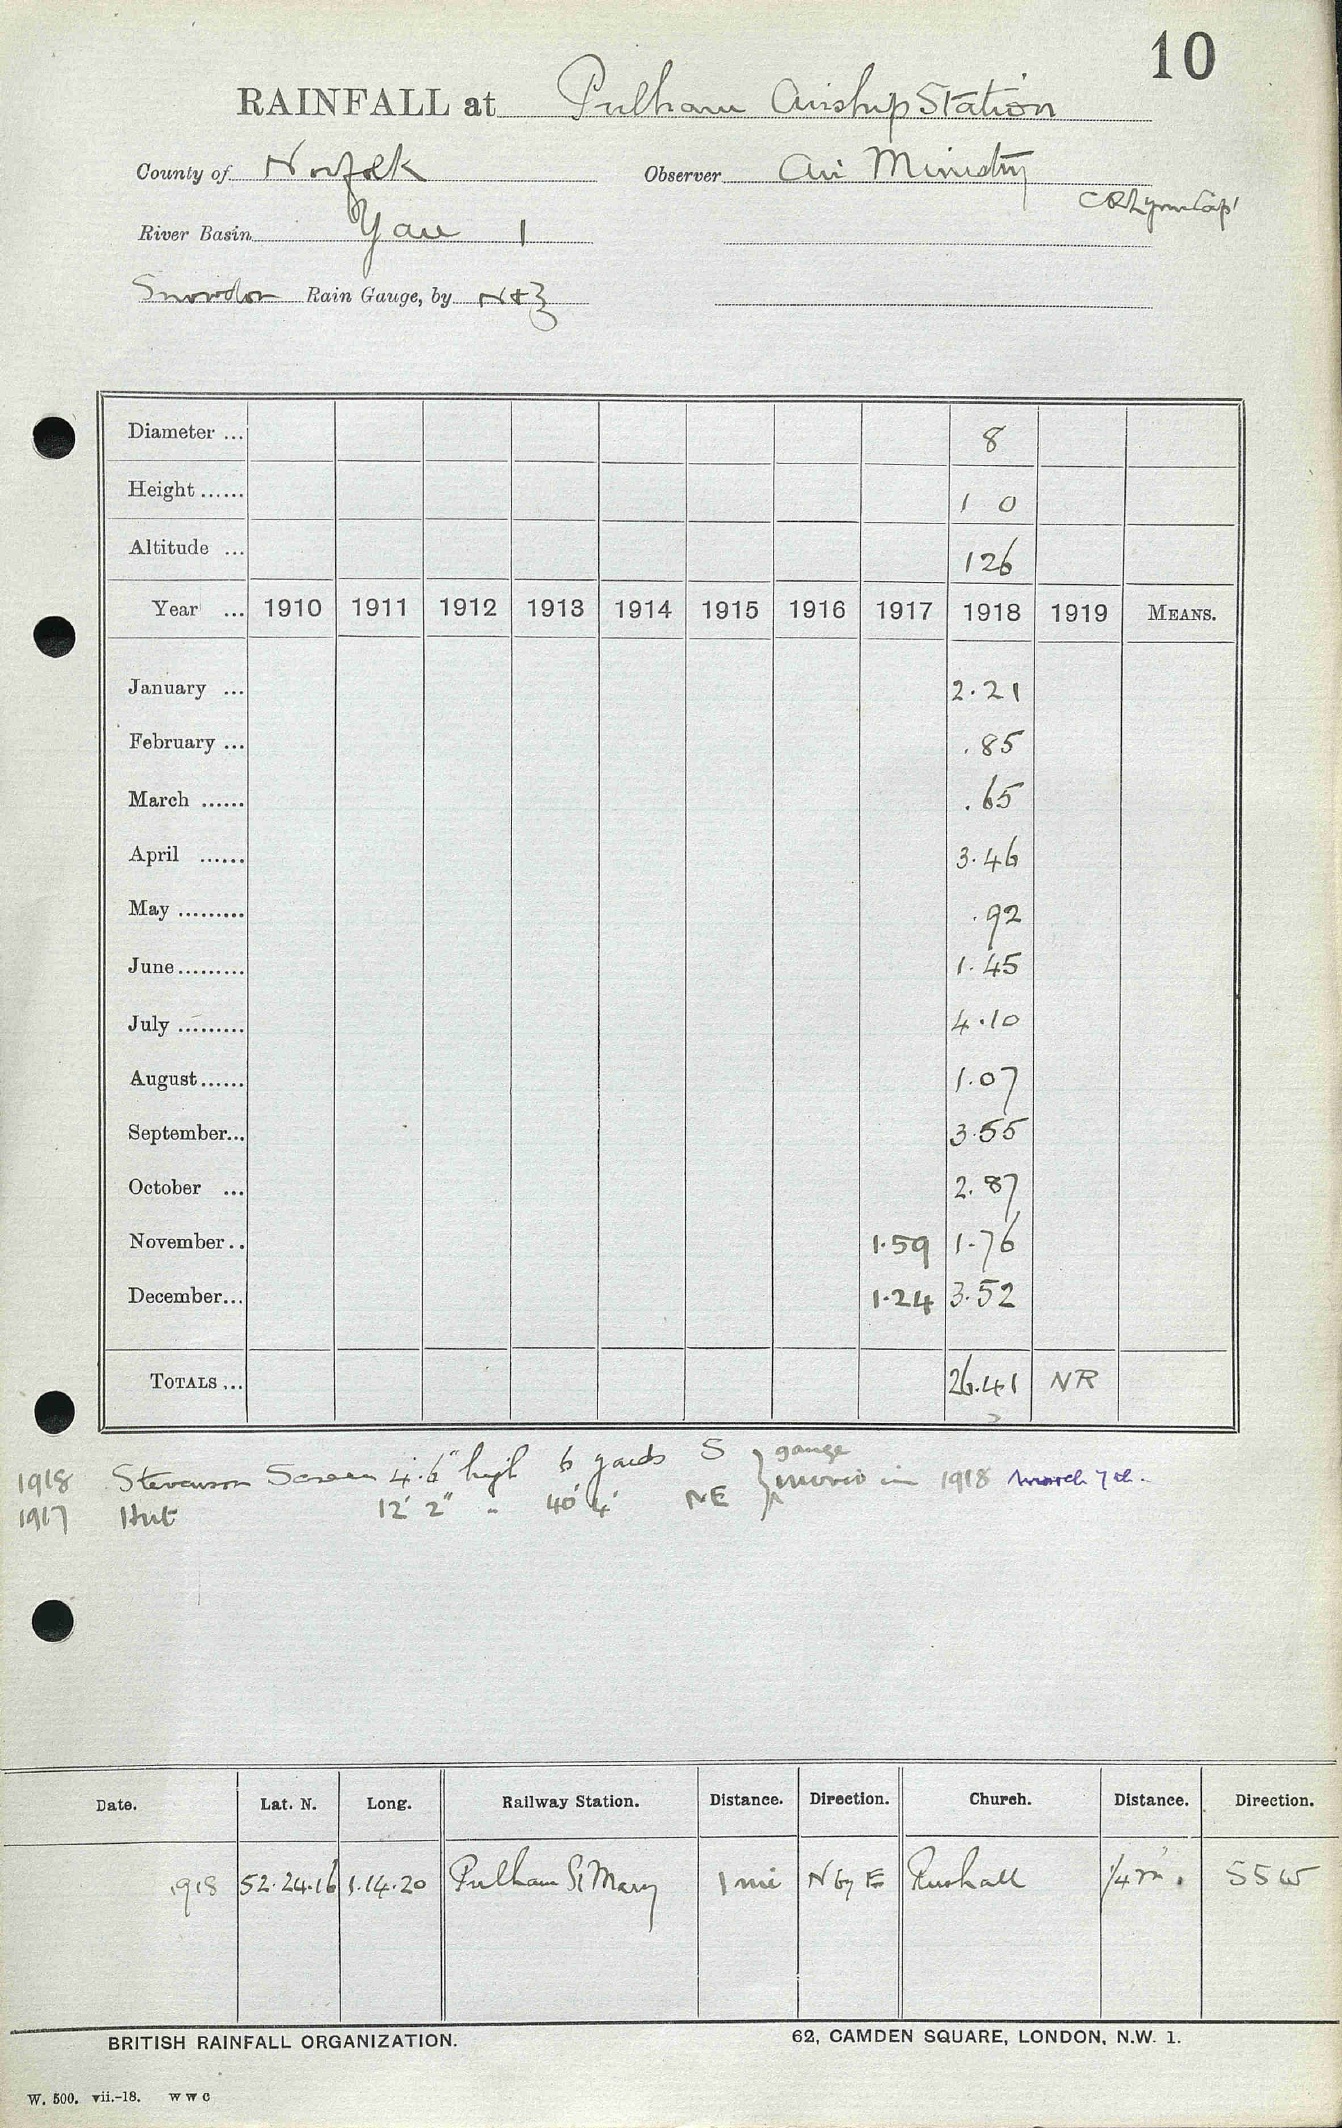 10
RAINFALL at Pulham Airship Station
County of Norfolk Observer Air Ministry
C R Lynn Capt
River Basin Yare 1
Snowdon Rain Gauge, by N & Z
Diameter ... 8
Height ...... 1 0
Altitude ... 126
Year ... 1910 1911 1912 1913 1914 1915 1916 1917 1918 1919 MEANS.
January ... 2.21
February ... .85
March ...... .65
April ...... 3.46
May ......... .92
June ......... 1.45
July ......... 4.10
August ...... 1.07
September... 3.55
October ... 2.87
November .. 1.59 1.76
December... 1.24 3.52
TOTALS ... 26.41 NR
1918 Stevenson Screen 4'.6" high 6 yards S } gauge
1917 Hut 12' 2" " 40' 4" NE } moved in 1918 March 7th.
Date. Lat. N. Long. Railway Station. Distance. Direction. Church. Distance. Direction.
1918 52.24.16 1.14.20 Pulham St Mary 1 mi N by E Rushall 1/4 m. SSW
BRITISH RAINFALL ORGANIZATION. 62, CAMDEN SQUARE, LONDON, N.W. 1.
W. 500. vii.-18. W W C